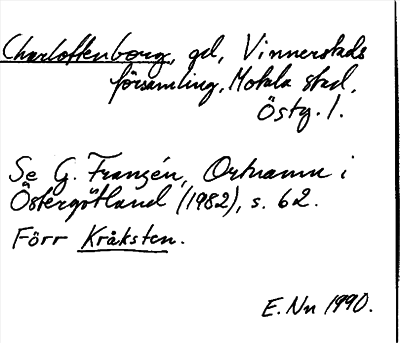 Charlottenborg, gd, Vinnerstads
församling, Motala stad,
Östg. l.
Se G. Franzén, Ortnamn i
Östergötland (1982), s. 62.
Förr Kråksten.
E. Nn 1990.